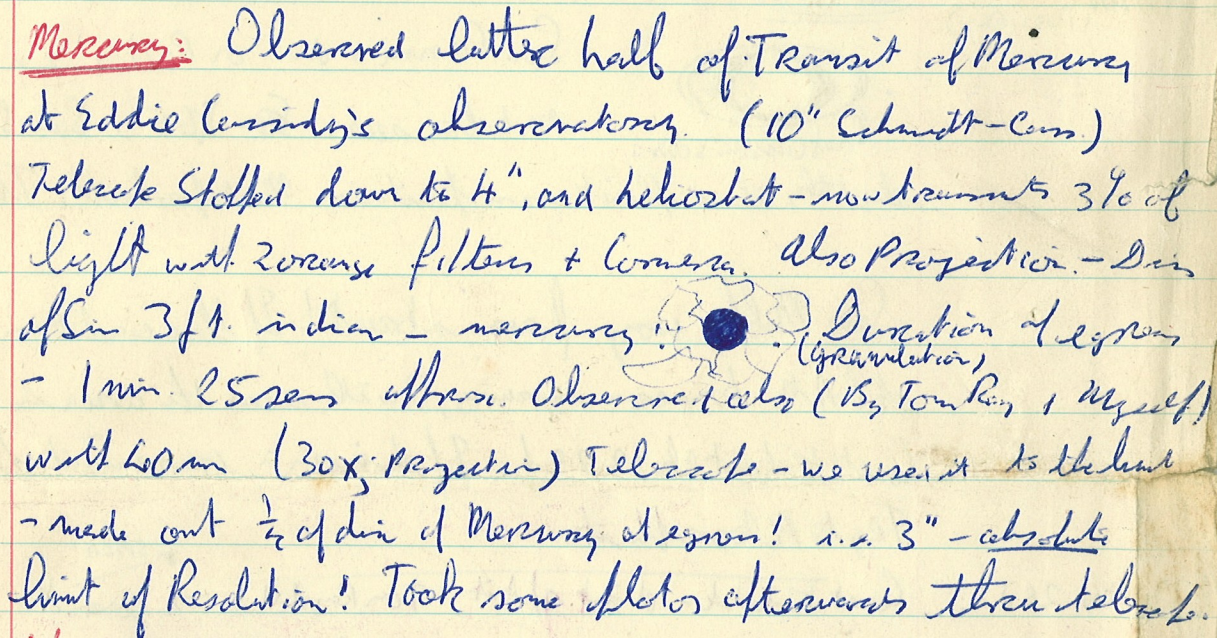 Mercury: Observed latter half of Transit of Mercury
at Eddie Cassidy's observatory. (10" Schmidt-Cass.)
Telescope Stopped down to 4", and heliostat - now transmits 3% of
light with 2 orange filters + Camera. Also Projection. - Diam
of Sun 3ft. in diam - mercury Duration of egress
(granulation)
- 1 min. 25 secs approx. Observed also (By Tom Ray & Myself)
with 40mm (30x; Projection) Telescope - we used it to the limit
- made out of diam of Mercury at egress! i.e. 3" - absolute
limit of Resolution! Took some photos afterwards thru telescope.